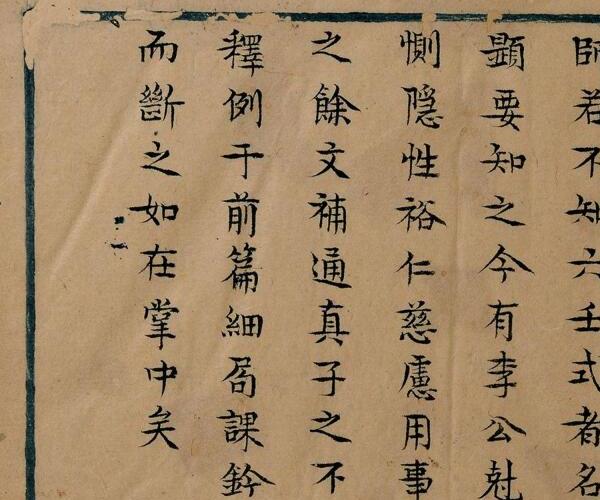 師若不知六壬式者名
顯要知之今有李公尅
惻隠性裕仁慈慮用事
之餘文補通真子之不
釋例于前篇細局課鈐
而斷之如在掌中矣